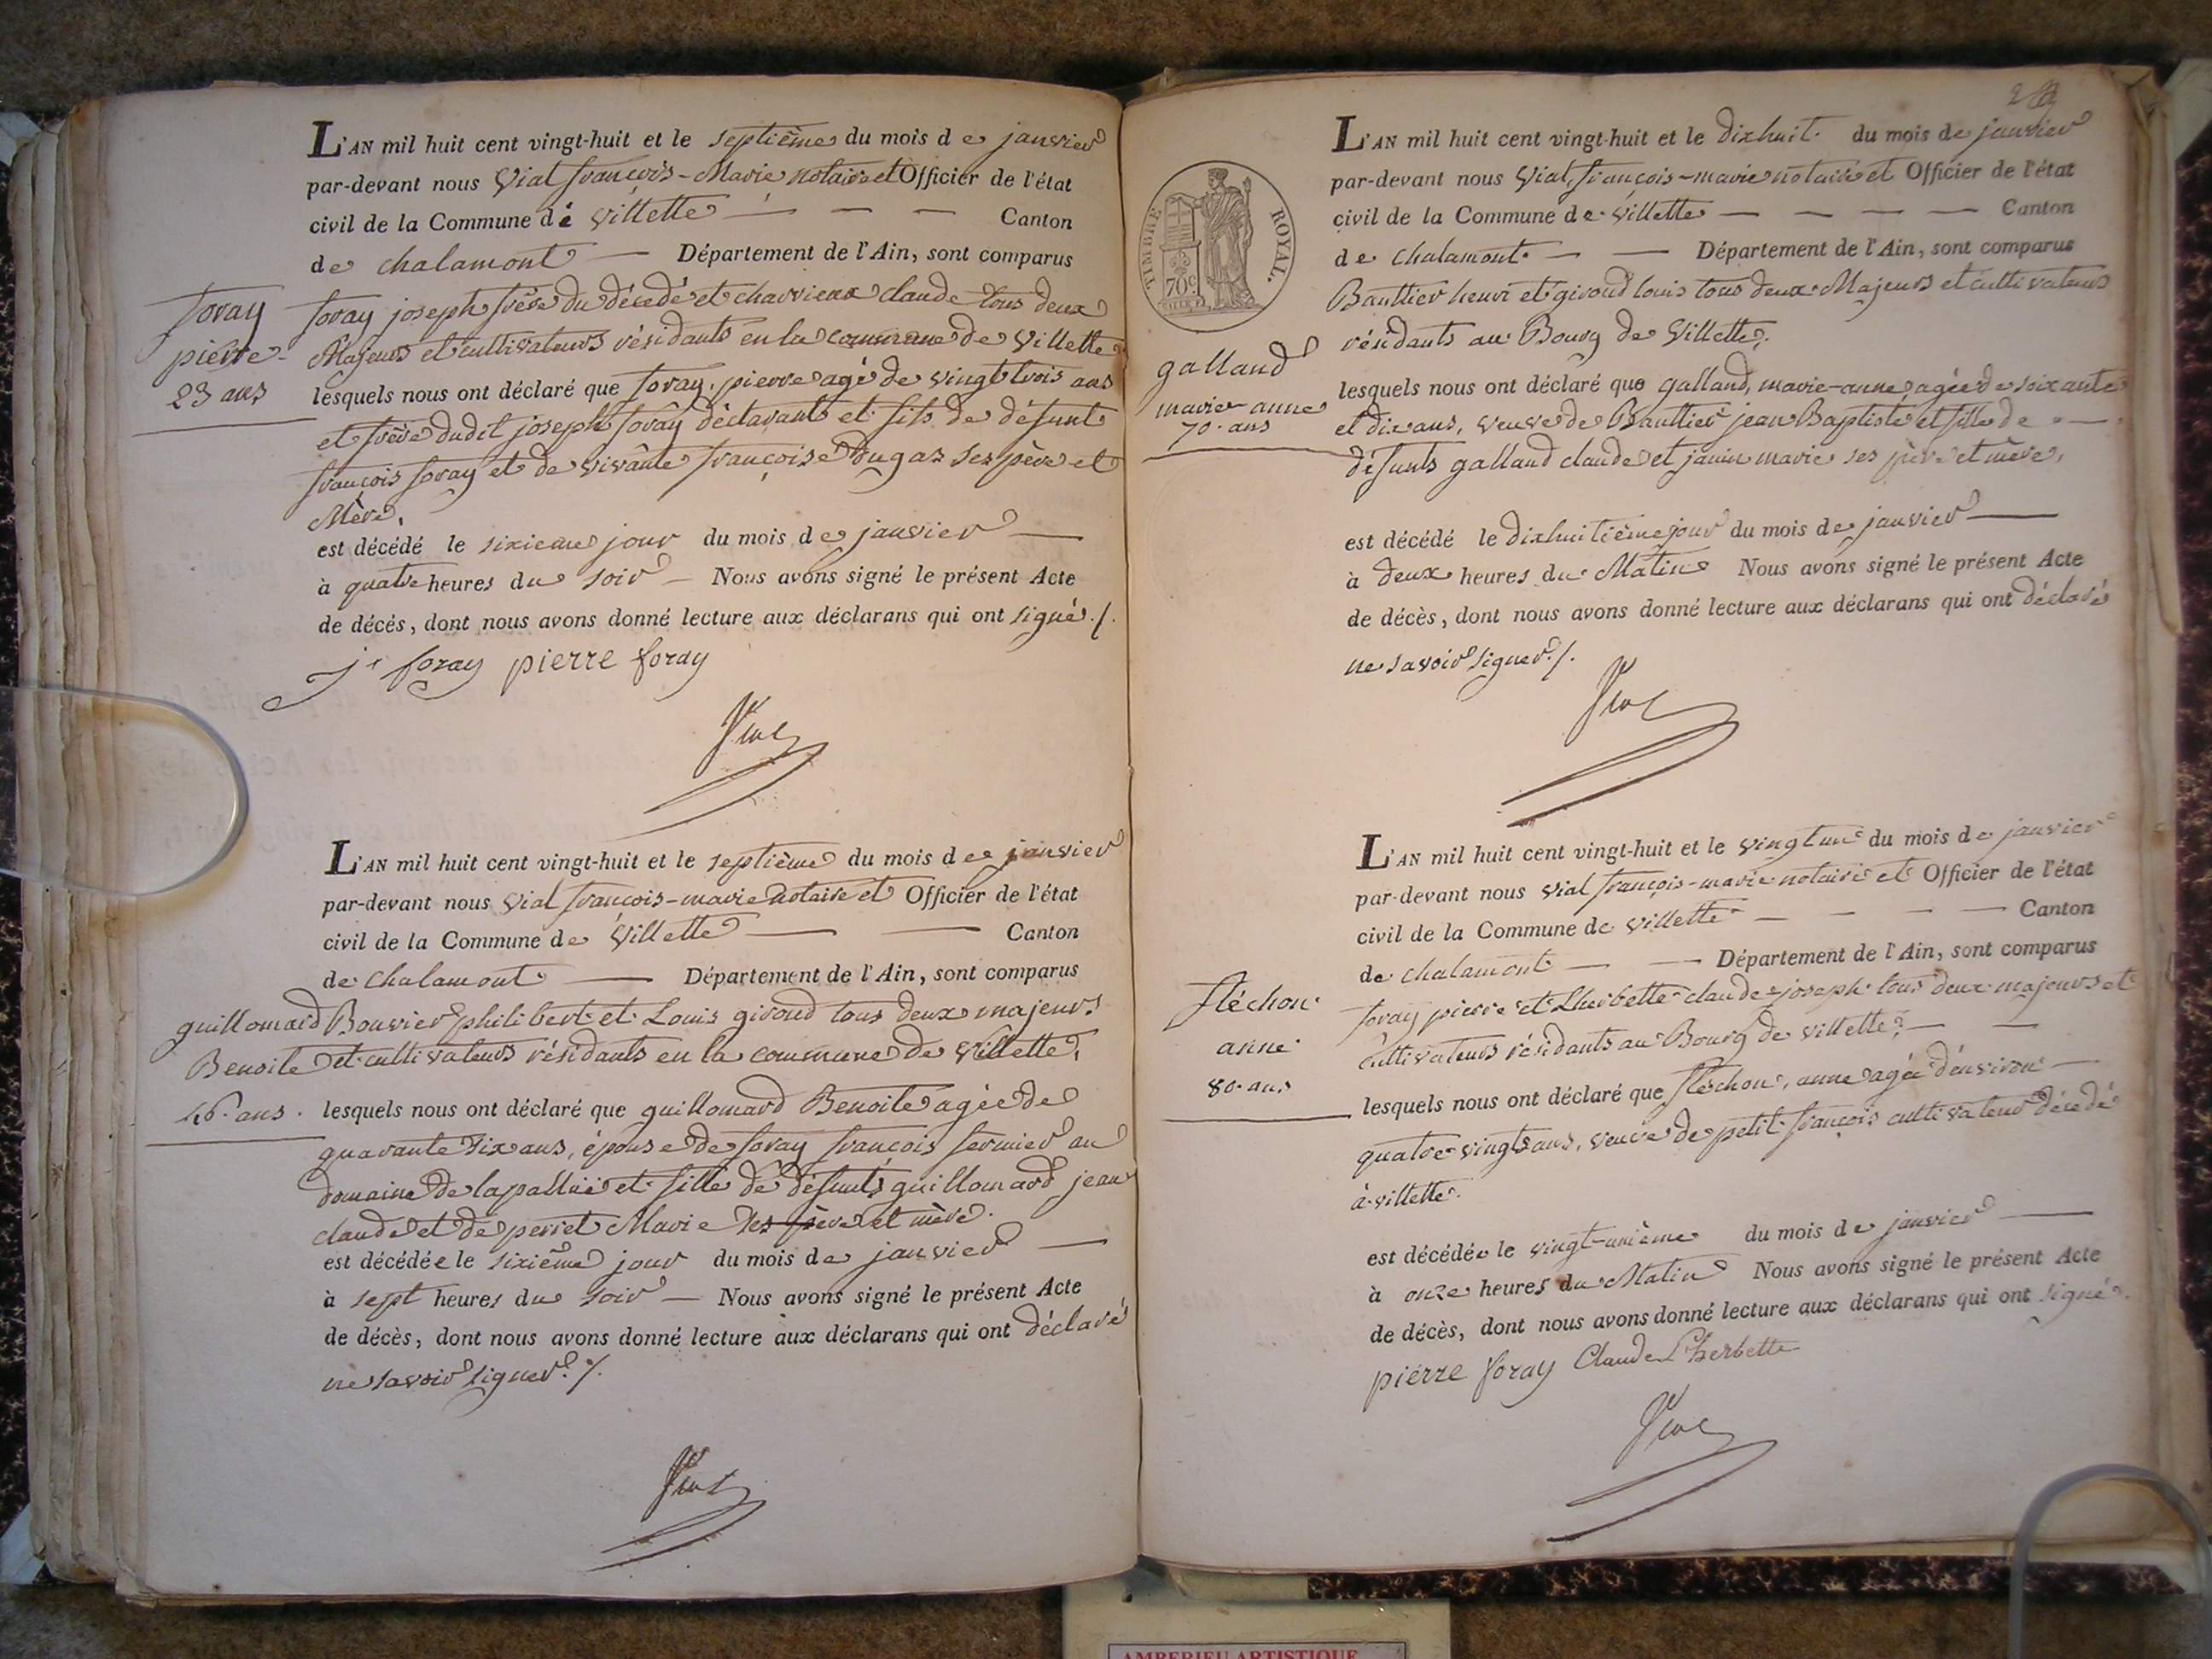 L'AN mil huit cent vingt-huit et le septième du mois de janvier
par-devant nous Vial françois-Marie notaire et Officier de l'état
civil de la Commune de Villette — — — Canton
de chalamont — Département de l'Ain, sont comparus
foray
pierre
23 ans
foray joseph frère du décedé et charvieux claude tous deux
Majeurs et cultivateurs résidants en la commune de Villette
lesquels nous ont déclaré que foray, pierre agé de vingt trois ans
et frère dudit joseph foray déclarant et fils de défunt
françois foray et de vivante françoise Dugas ses père et
Mère.
est décédé le sixieme jour du mois de janvier —
à quatre heures du soir — Nous avons signé le présent Acte
de décés, dont nous avons donné lecture aux déclarans qui ont signé./.
jh foray pierre foray
Vial
L'AN mil huit cent vingt-huit et le septième du mois de janvier
par-devant nous Vial françois-marie notaire et Officier de l'état
civil de la Commune de Villette — — Canton
de chalamont — Département de l'Ain, sont comparus
guillomard
Benoite
46 ans.
Bouvier philibert et Louis giroud tous deux majeurs
et cultivateurs résidants en la commune de Villette,
lesquels nous ont déclaré que guillomard Benoite agée de
quarante six ans, épouse de foray françois fermier au
domaine de et fille de défunts guillomard jean
claude et de perret Marie ses père et mère.
est décédée le sixième jour du mois de janvier —
à sept heures du soir — Nous avons signé le présent Acte
de décès, dont nous avons donné lecture aux déclarans qui ont déclaré
ne savoir signer./.
Vial
TIMBRE ROYAL.
70c
L'AN mil huit cent vingt-huit et le dixhuit du mois de janvier
par-devant nous Vial, françois-marie notaire et Officier de l'état
civil de la Commune de Villette — — — — Canton
de chalamont — — Département de l'Ain, sont comparus
galland
marie-anne
70 ans
Banttier henri et giroud louis tous deux Majeurs et cultivateurs
résidants au Bourg de Villette,
lesquels nous ont déclaré que galland, marie-anne agée de soixante
et dix ans, veuve de Banttier jean Baptiste et fille de —
défunts galland claude et janin marie ses père et mère,
est décédé le dixhuitième jour du mois de janvier —
à deux heures du Matin Nous avons signé le présent Acte
de décès, dont nous avons donné lecture aux déclarans qui ont déclaré
ne savoir signer./.
Vial
L'AN mil huit cent vingt-huit et le vingt un du mois de janvier
par-devant nous Vial françois-marie notaire et Officier de l'état
civil de la Commune de Villette — — — — Canton
de chalamont — — Département de l'Ain, sont comparus
fléchon
anne
80 ans
foray pierre et Lherbette claude-joseph tous deux majeurs et
cultivateurs résidants au Bourg de Villette, — —
lesquels nous ont déclaré que fléchon, anne agée d'environ —
quatre-vingts ans, veuve de petit françois cultivateur décedé
à villette.
est décédée le vingt-unième du mois de janvier —
à onze heures du Matin Nous avons signé le présent Acte
de décès, dont nous avons donné lecture aux déclarans qui ont signé.
pierre foray Claude L'herbette
Vial
AMBERIEU ARTISTIQUE